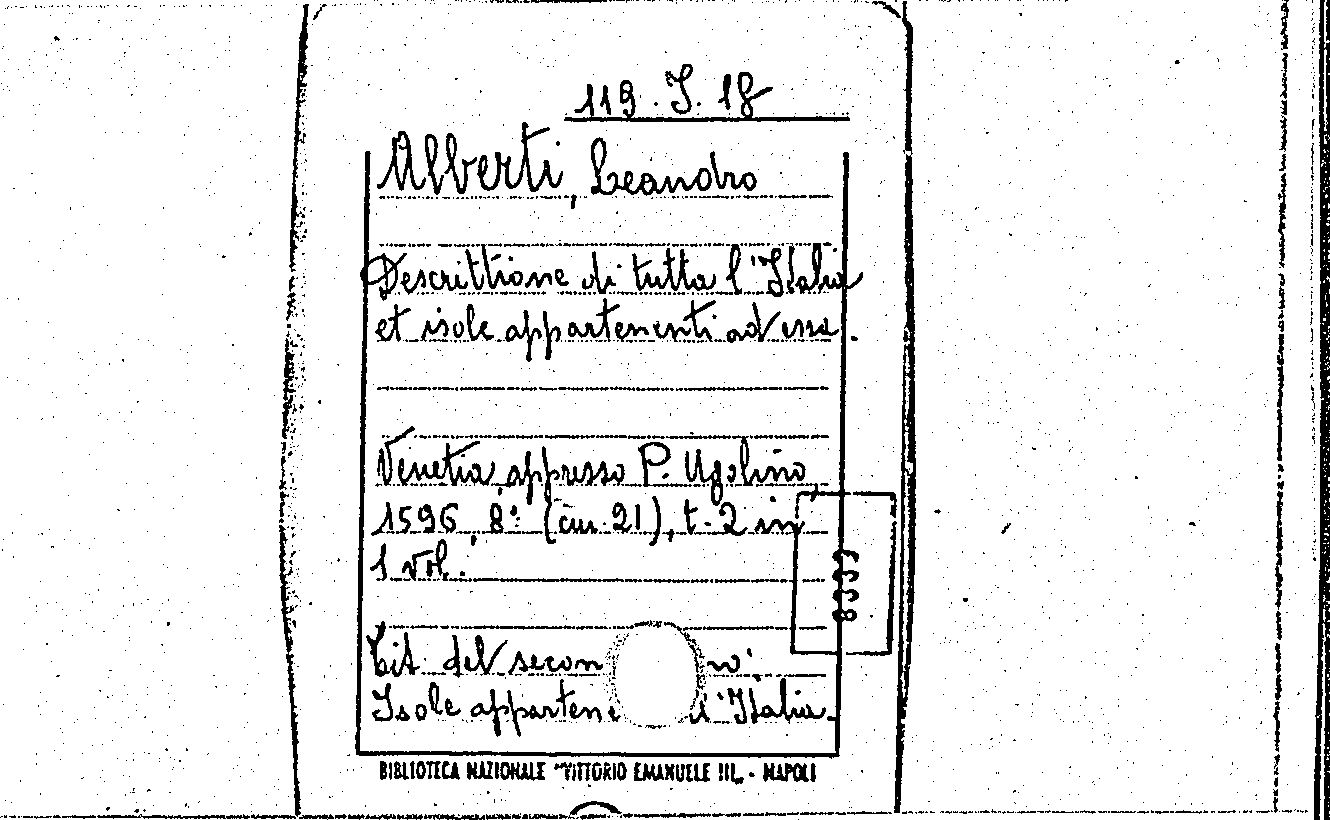 119. J. 18
Alberti, Leandro
Descrittione di tutta l'Italia
et isole appartenenti ad essa.
Venetia, appresso P. Ugolino,
1596, 8° (cm. 21), t. 2 in
1 vol.
Tit. del secon no:
Isole appartene d'Italia.
BIBLIOTECA NAZIONALE "VITTORIO EMANUELE III„ - NAPOLI